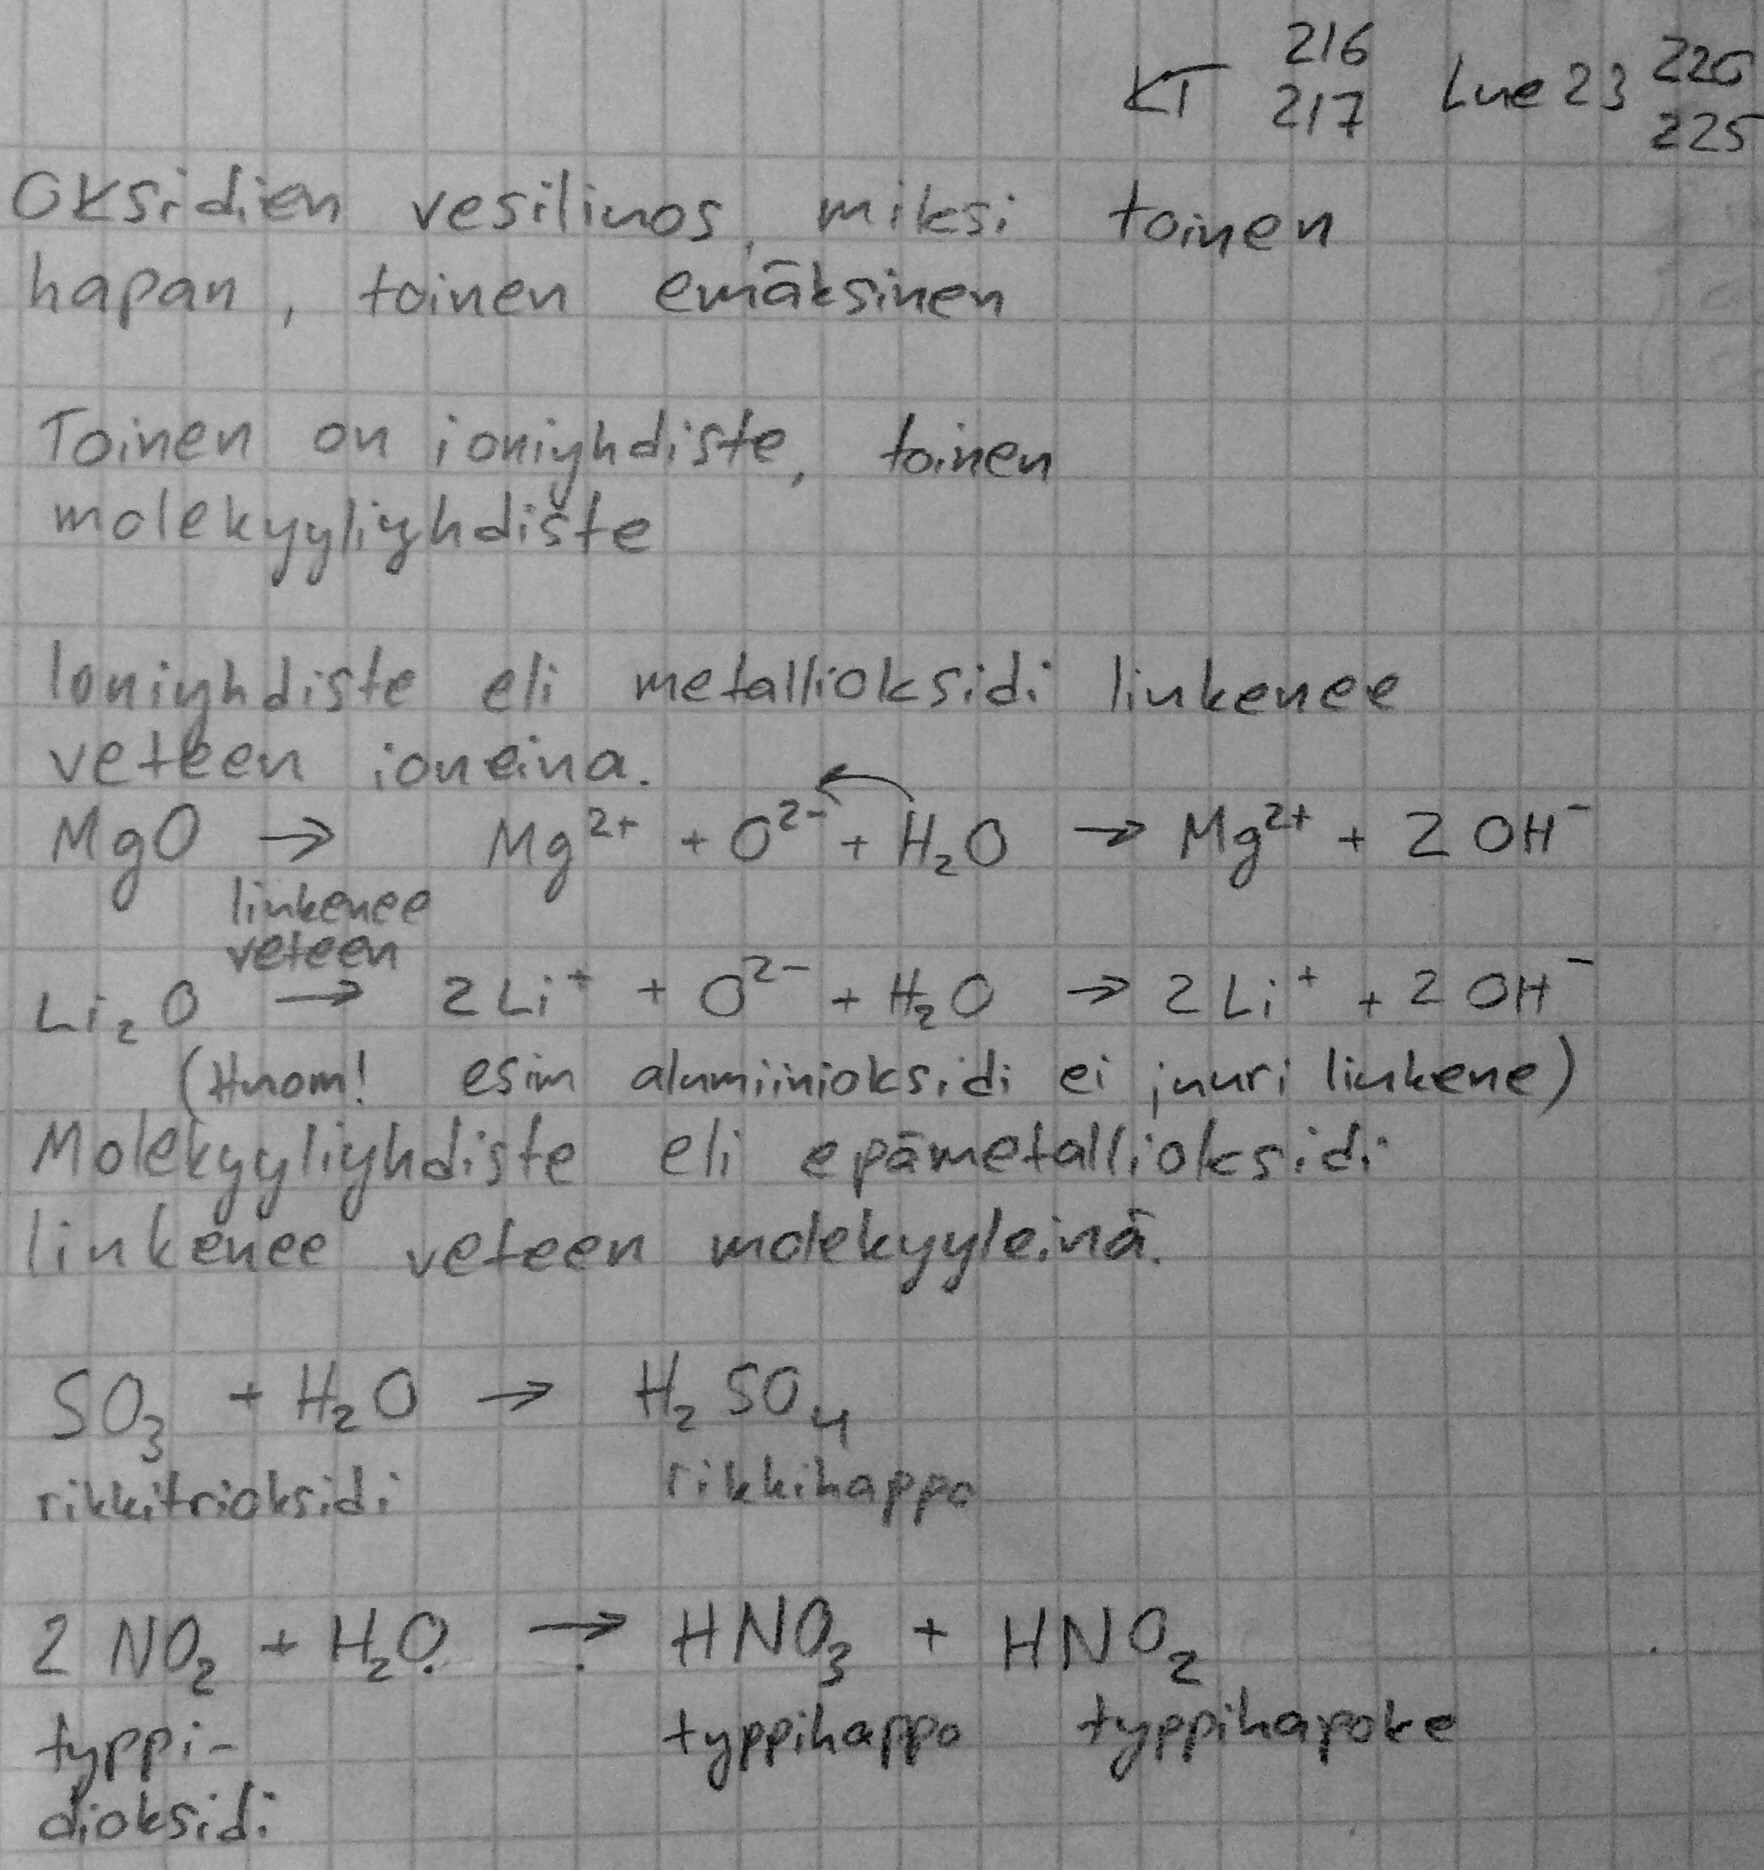 216
KT 217 Lue 23 226
225
Oksidien vesiliuos, miksi toinen
hapan, toinen emäksinen
Toinen on ioniyhdiste, toinen
molekyyliyhdiste
Ioniyhdiste eli metallioksidi liukenee
veteen ioneina.
MgO → Mg²⁺ + O²⁻ + H₂O → Mg²⁺ + 2 OH⁻
liukenee
veteen
Li₂O → 2 Li⁺ + O²⁻ + H₂O → 2 Li⁺ + 2 OH⁻
(Huom! esim alumiinioksidi ei juuri liukene)
Molekyyliyhdiste eli epämetallioksidi
liukenee veteen molekyyleinä.
SO₃ + H₂O → H₂SO₄
rikkitrioksidi rikkihappo
2 NO₂ + H₂O → HNO₃ + HNO₂
typpi- typpihappo typpihapoke
dioksidi